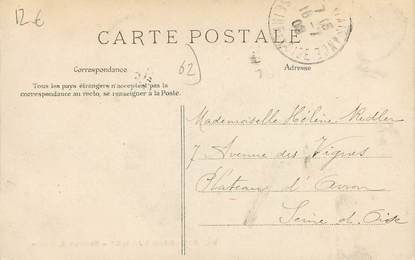 12 €
CARTE POSTALE
Correspondance
62
Adresse
Tous les pays étrangers n'acceptent pas la
correspondance au recto, se renseigner à la Poste.
Mademoiselle Hélène Redler
7 Avenue des Vignes
Plateau d'Avron
Seine et Oise